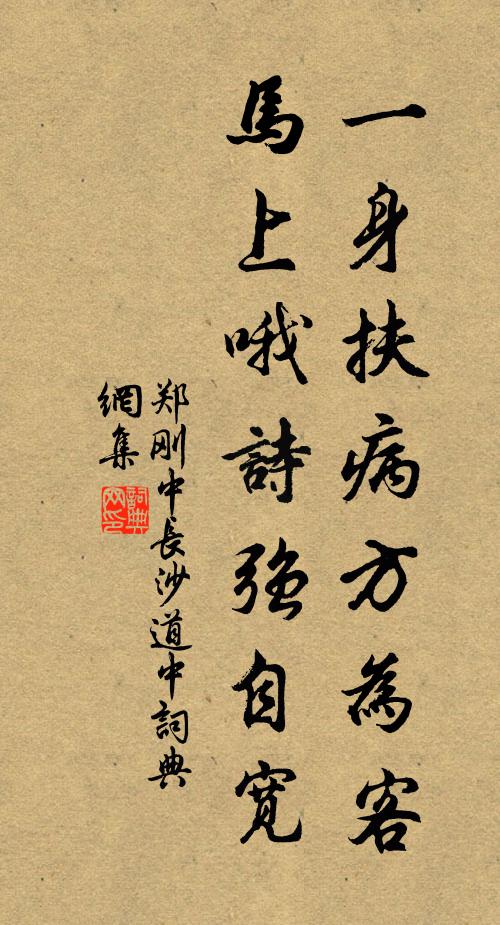 一身扶病方為客
馬上哦詩強自寬
郑刚中長沙道中詞典
網集
詞典
网印